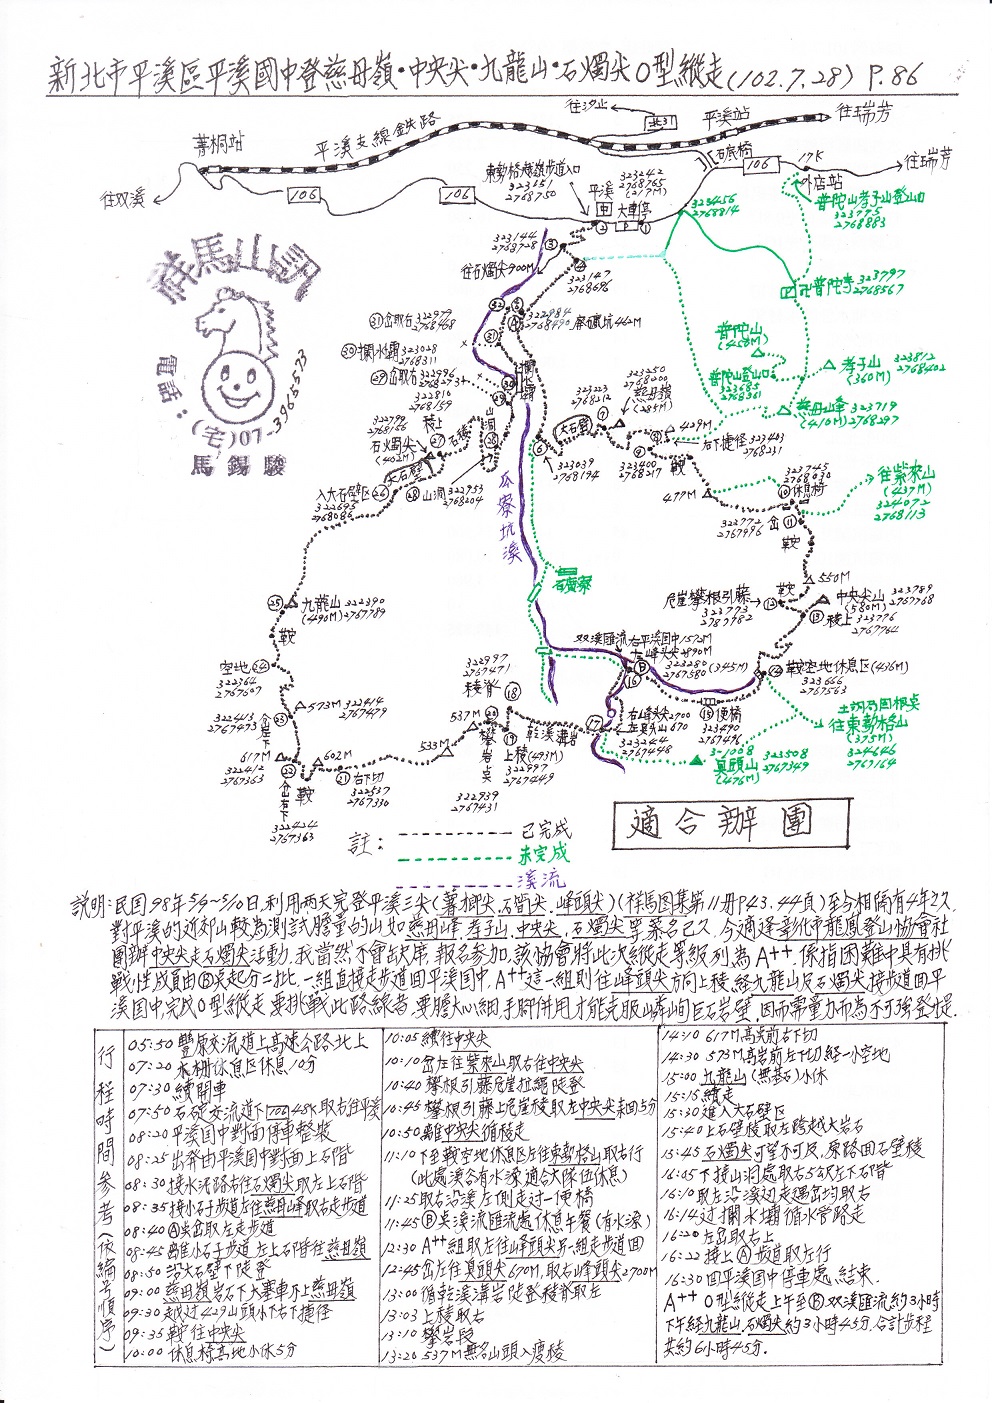 新北市平溪區平溪國中登慈母嶺·中央尖·九龍山·石燭尖O型縱走(102.7.28) P.86
往汐止
平溪站
往瑞芳
菁桐站
平溪支線鐵路
石底橋
106
17K
往瑞芳
往双溪
106
106
外店站
平溪
大車停
323242
2768765
(217M)
323456
2768814
普陀山孝子山登山口
323775
2768883
323144
2768728
往石燭尖900M
323147
2768696
普陀寺 323797
2768567
群馬山訊
電話：
(宅)07-3965523
馬錫駿
31岔取右 322979
2768468
322984
2768490
462M
30攔水霸 323028
2768311
29岔取右 322996
2768273
普陀山
(450M)
孝子山 323812
(360M) 2768402
普陀山登山口
323685
2768361
323250
2768200
慈母嶺
(285M)
323223
2768212
慈母峰 323719
(410M) 2768247
322810
2768159
322799
2768166
稜上
石燭尖
(402M)
石稜
山洞
大石壁
429M
右下捷徑 323403
2768231
入大石壁区
322695
2768086
山洞 322953
2768204
323039
2768194
323400
2768217
鞍
477M
323745
2768030
休息椅
往紫來山
(437M)
324072
2768113
瓜寮坑溪
323772
2767996
岔
鞍
石廣寮
550M
九龍山 322390
(490M) 2767789
鞍
危崖攀根引藤
323773
鞍
中央尖山 323789
(580M) 2767768
稜上 323776
2767764
双溪匯流
右平溪国中1572M
323280
2767580
(345M)
空地
322364
2767607
322997
2767471
稜脊
鞍空地休息区(436M)
323666
2767563
便橋
323490
2767496
往東勢格山
(375M)
324646
2767164
573M
322414
2767479
322413
2767473
岔左下
617M
322412
2767363
岔右下
322424
2767363
鞍
602M
右下切
322537
2767330
533M
537M
攀岩吳
322939
2767431
乾溪溝岩
上稜(493M)
322997
2767449
323244
2767448
3-1008
真頭山
(476M)
323508
2767349
適合辦團
註：
已完成
未完成
溪流
說明：民国98年5/9~5/10日,利用兩天完登平溪三尖(薯榔尖.石筍尖.峰頭尖)(群馬图集第11册P43.44頁)至今相隔有4年之久.
對平溪的近郊山較為測試膽量的山如慈母峰.孝子山.中央尖.石燭尖等慕名已久.今適逢彰化市龍鳳登山協會社
團辦中央尖走石燭尖活動.我當然不會缺席.報名參加.該協會將此次縱走等級列為A++.係指困難中具有挑
戰性成員由Ⓑ吳起分二批.一組直接走步道回平溪国中.A++這一組則往峰頭尖方向上稜.經九龍山反石燭尖接步道回平
溪国中.完成O型縱走.要挑戰此路線者.要膽大心細.手腳併用才能克服山嶙峋巨石岩壁.因而需量力而為不可強登挺.
行程時間參考(依編号順序)
05:50 豐原交流道上高速公路北上
07:20 木柵休息区休息10分
07:30 續開車
07:50 石碇交流道下106 48K取右往平溪
08:20 平溪国中對面停車整裝
08:25 出發由平溪国中對面上石階
08:30 接水泥路右往石燭尖取左上石階
08:35 接小石子步道左往慈母峰取右走步道
08:40 Ⓐ吳岔取左走步道
08:45 離小石子步道左上石階往慈母嶺
08:50 沿大石壁下陡登
09:00 慈母嶺岩石下大塞車不上慈母嶺
09:30 越过429山頭小下右下捷徑
09:35 鞍往中央尖
10:00 休息椅高地小休5分
10:05 續往中央尖
10:10 岔左往紫來山取右往中央尖
10:40 攀根引藤危崖拉繩陡登
10:45 攀根引藤上危崖稜取左中央尖來回5分
10:50 離中央尖循稜走
11:10 下至鞍空地休息区左往東勢格山取右行
(此處溪谷有水源適合大隊伍休息)
11:25 取右沿溪左側走过一便橋
11:45 Ⓑ吳溪流匯流處休息午餐(有水源)
12:30 A++組取左往峰頭尖另一組走步道回
12:45 岔左往真頭尖670M,取右峰頭尖2700M
13:00 循乾溪溝岩陡登稜脊取左
13:03 上稜取右
13:10 攀岩段
13:20 537M無名山頭入瘦稜
14:10 617M高尖前右下切
14:30 573M高岩前左下切經一小空地
15:00 九龍山(無基石)小休
15:15 續走
15:30 進入大石壁区
15:40 上石壁稜取左跨越大岩石
15:45 石燭尖可望不可及,原路回石壁稜
16:05 下接山洞處取右5公尺左下石階
16:10 取左沿溪边走遇岔均取右
16:14 过攔水壩循水管路走
16:20 左岔取右上
16:22 接上Ⓐ步道取左行
16:30 回平溪国中停車處.結束.
A++ O型縱走上午至Ⓑ双溪匯流約3小時
下午經九龍山.石燭尖約3小時45分.合計步程
共約6小時45分.